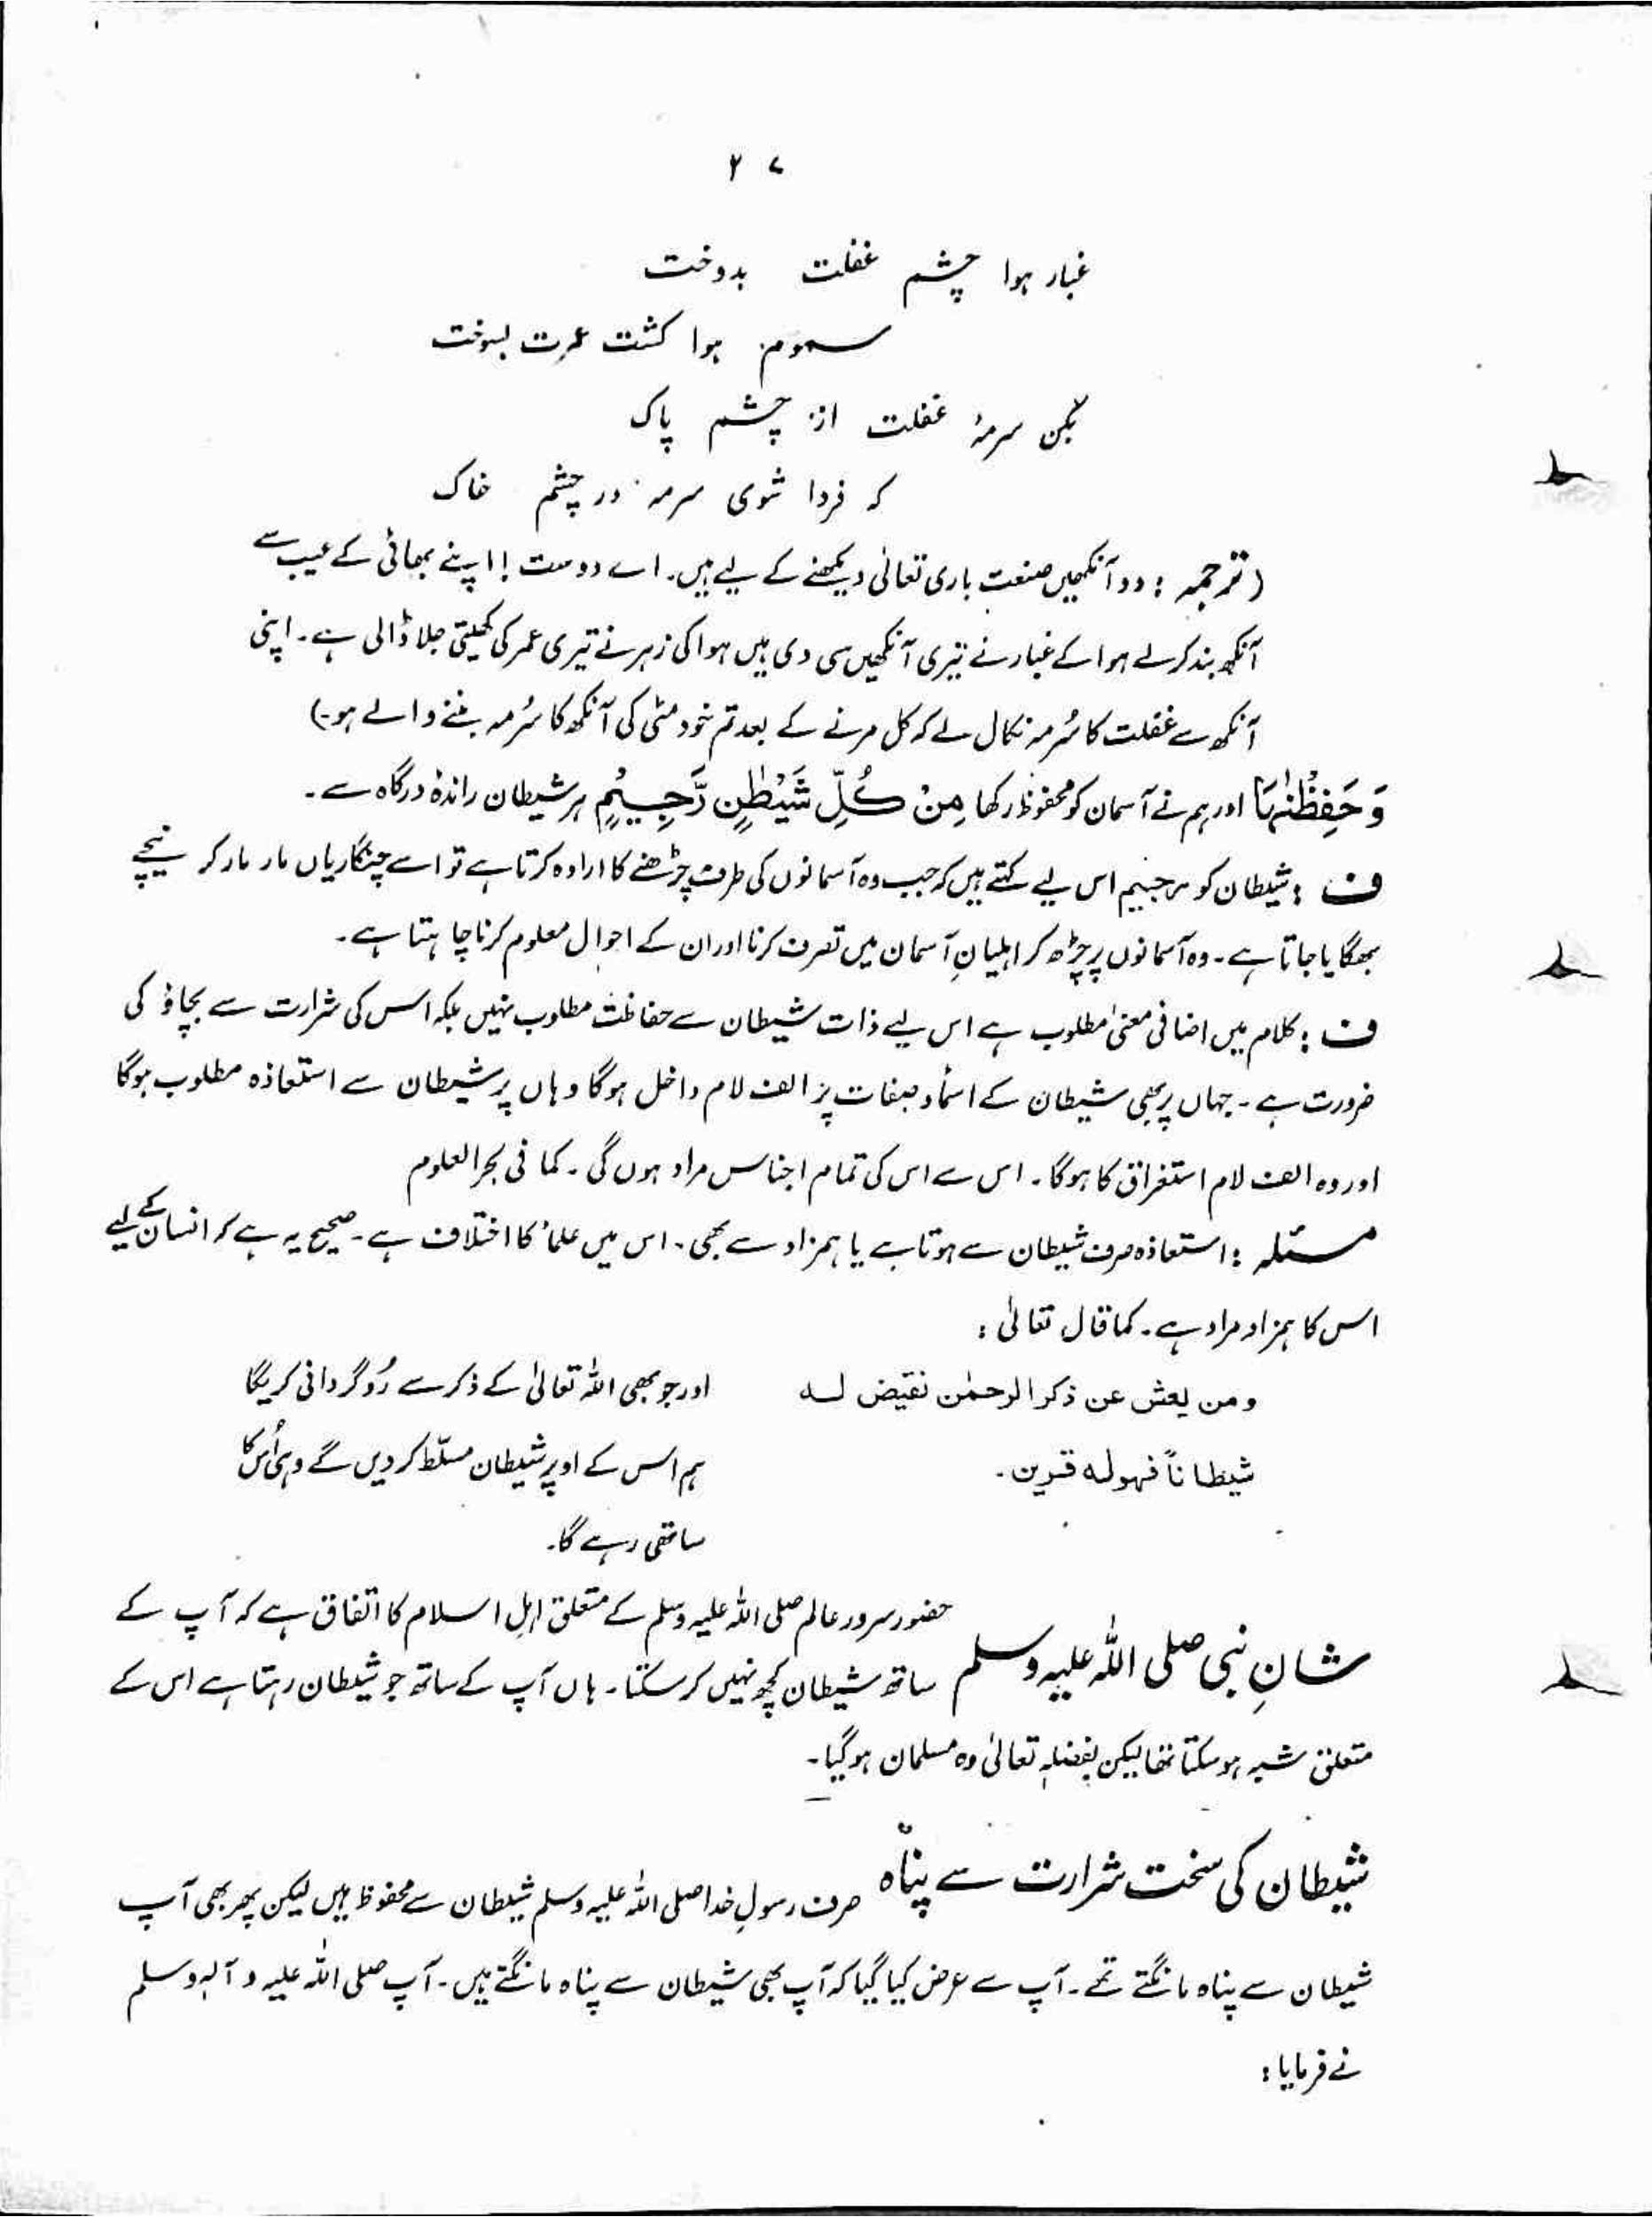 ۲۷
غبار ہوا چشم غفلت بدوخت
سموم ہوا کشت عمرت بسوخت
بکن سرمۂ غفلت از چشم پاک
کہ فردا شوی سرمہ در چشم خاک
(ترجمہ : دو آنکھیں صنعت باری تعالیٰ دیکھنے کے لیے ہیں۔ اے دوست ! اپنے بھائی کے عیب سے
آنکھ بند کر لے ہوا کے غبار نے تیری آنکھیں سی دی ہیں ہوا کی زہر نے تیری عمر کی کھیتی جلا ڈالی ہے۔ اپنی
آنکھ سے غفلت کا سُرمہ نکال لے کہ کل مرنے کے بعد تم خود مٹی کی آنکھ کا سُرمہ بننے والے ہو۔)
وَحَفِظْنٰہَا اور ہم نے آسمان کو محفوظ رکھا مِنْ کُلِّ شَیْطٰنٍ رَّجِیْمٍ ہر شیطان راندۂ درگاہ سے۔
ف : شیطان کو رجیم اس لیے کہتے ہیں کہ جب وہ آسمانوں کی طرف چڑھنے کا ارادہ کرتا ہے تو اسے چنگاریاں مار مار کر نیچے
بھگایا جاتا ہے۔ وہ آسمانوں پر چڑھ کر اہلیانِ آسمان میں تصرف کرنا اور ان کے احوال معلوم کرنا چاہتا ہے۔
ف : کلام میں اضافی معنیٰ مطلوب ہے اس لیے ذات شیطان سے حفاظت مطلوب نہیں بلکہ اس کی شرارت سے بچاؤ کی
ضرورت ہے۔ جہاں پر بھی شیطان کے اسماء و صفات پر الف لام داخل ہوگا وہاں پر شیطان سے استعاذہ مطلوب ہوگا
اور وہ الف لام استغراق کا ہوگا۔ اس سے اس کی تمام اجناس مراد ہوں گی۔ کما فی بحر العلوم
مسئلہ : استعاذہ صرف شیطان سے ہوتا ہے یا ہمزاد سے بھی۔ اس میں علماء کا اختلاف ہے۔ صحیح یہ ہے کہ انسان کے لیے
اس کا ہمزاد مراد ہے۔ کما قال تعالیٰ :
ومن یعش عن ذکر الرحمٰن نقیض لہ
شیطاناً فہو لہ قرین۔
اور جو بھی اللہ تعالیٰ کے ذکر سے رُوگردانی کریگا
ہم اس کے اوپر شیطان مسلّط کر دیں گے وہی اُس کا
ساتھی رہے گا۔
شانِ نبی صلی اللہ علیہ وسلم حضور سرور عالم صلی اللہ علیہ وسلم کے متعلق اہلِ اسلام کا اتفاق ہے کہ آپ کے
ساتھ شیطان کچھ نہیں کر سکتا۔ ہاں آپ کے ساتھ جو شیطان رہتا ہے اس کے
متعلق شبہ ہو سکتا تھا لیکن بفضلہٖ تعالیٰ وہ مسلمان ہوگیا۔
شیطان کی سخت شرارت سے پناہ صرف رسولِ خدا صلی اللہ علیہ وسلم شیطان سے محفوظ ہیں لیکن پھر بھی آپ
شیطان سے پناہ مانگتے تھے۔ آپ سے عرض کیا گیا کہ آپ بھی شیطان سے پناہ مانگتے ہیں۔ آپ صلی اللہ علیہ و آلہ وسلم
نے فرمایا :